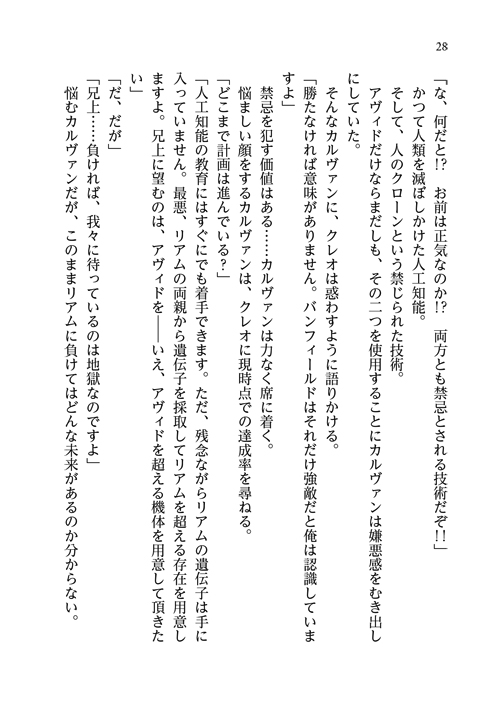 28
「な、何だと!?　お前は正気なのか!?　両方とも禁忌とされる技術だぞ!!」
かつて人類を滅ぼしかけた人工知能。
そして、人のクローンという禁じられた技術。
アヴィドだけならまだしも、その二つを使用することにカルヴァンは嫌悪感をむき出し
にしていた。
そんなカルヴァンに、クレオは惑わすように語りかける。
「勝たなければ意味がありません。バンフィールドはそれだけ強敵だと俺は認識していま
すよ」
禁忌を犯す価値はある……カルヴァンは力なく席に着く。
悩ましい顔をするカルヴァンは、クレオに現時点での達成率を尋ねる。
「どこまで計画は進んでいる?」
「人工知能の教育にはすぐにでも着手できます。ただ、残念ながらリアムの遺伝子は手に
入っていません。最悪、リアムの両親から遺伝子を採取してリアムを超える存在を用意し
ますよ。兄上に望むのは、アヴィドを――いえ、アヴィドを超える機体を用意して頂きた
い」
「だ、だが」
「兄上……負ければ、我々に待っているのは地獄なのですよ」
悩むカルヴァンだが、このままリアムに負けてはどんな未来があるのか分からない。